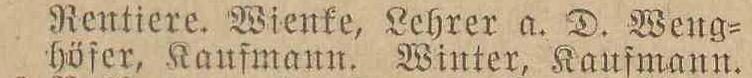 Rentiere. Wienke, Lehrer a. D. Weng=
höfer, Kaufmann. Winter, Kaufmann.